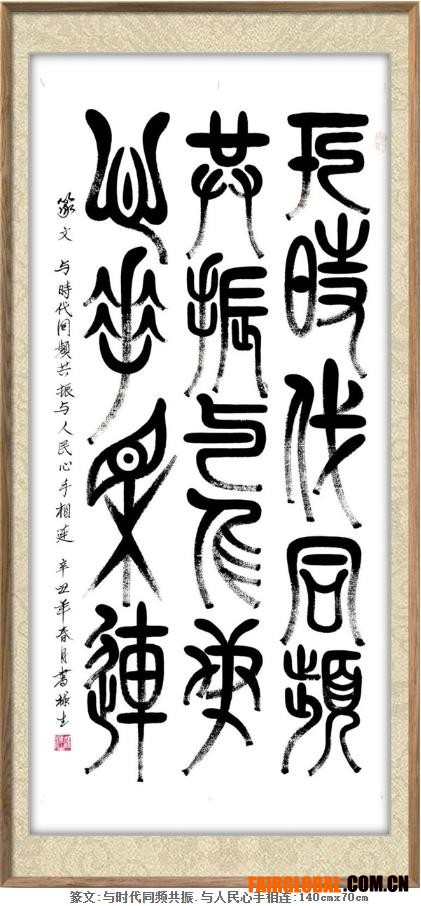 与時代同頻
共振与人民
心手相連
篆文 与時代同頻共振与人民心手相連 辛丑年春月書
FAIRGLOBAL.COM.CN
篆文:与时代同频共振.与人民心手相连:140cmx70cm